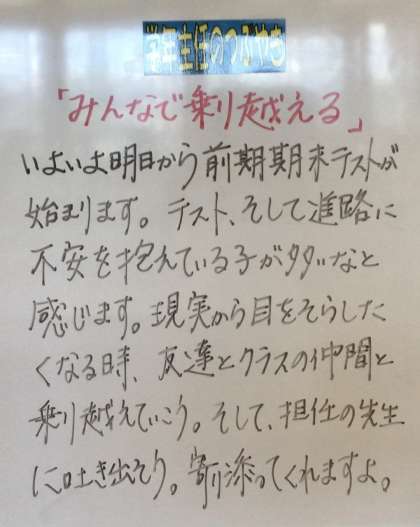 学年主任のつぶやき
「みんなで乗り越える」
いよいよ明日から前期期末テストが
始まります。テスト、そして進路に
不安を抱えている子が多いなと
感じます。現実から目をそらした
くなる時、友達とクラスの仲間と
乗り越えていこう。そして、担任の先生
に吐き出そう。寄り添ってくれますよ。